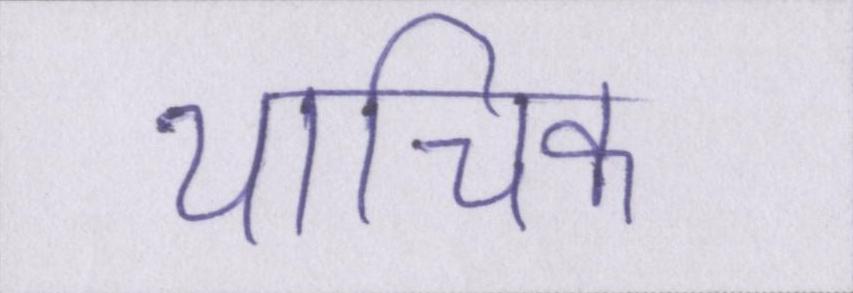 याचिक